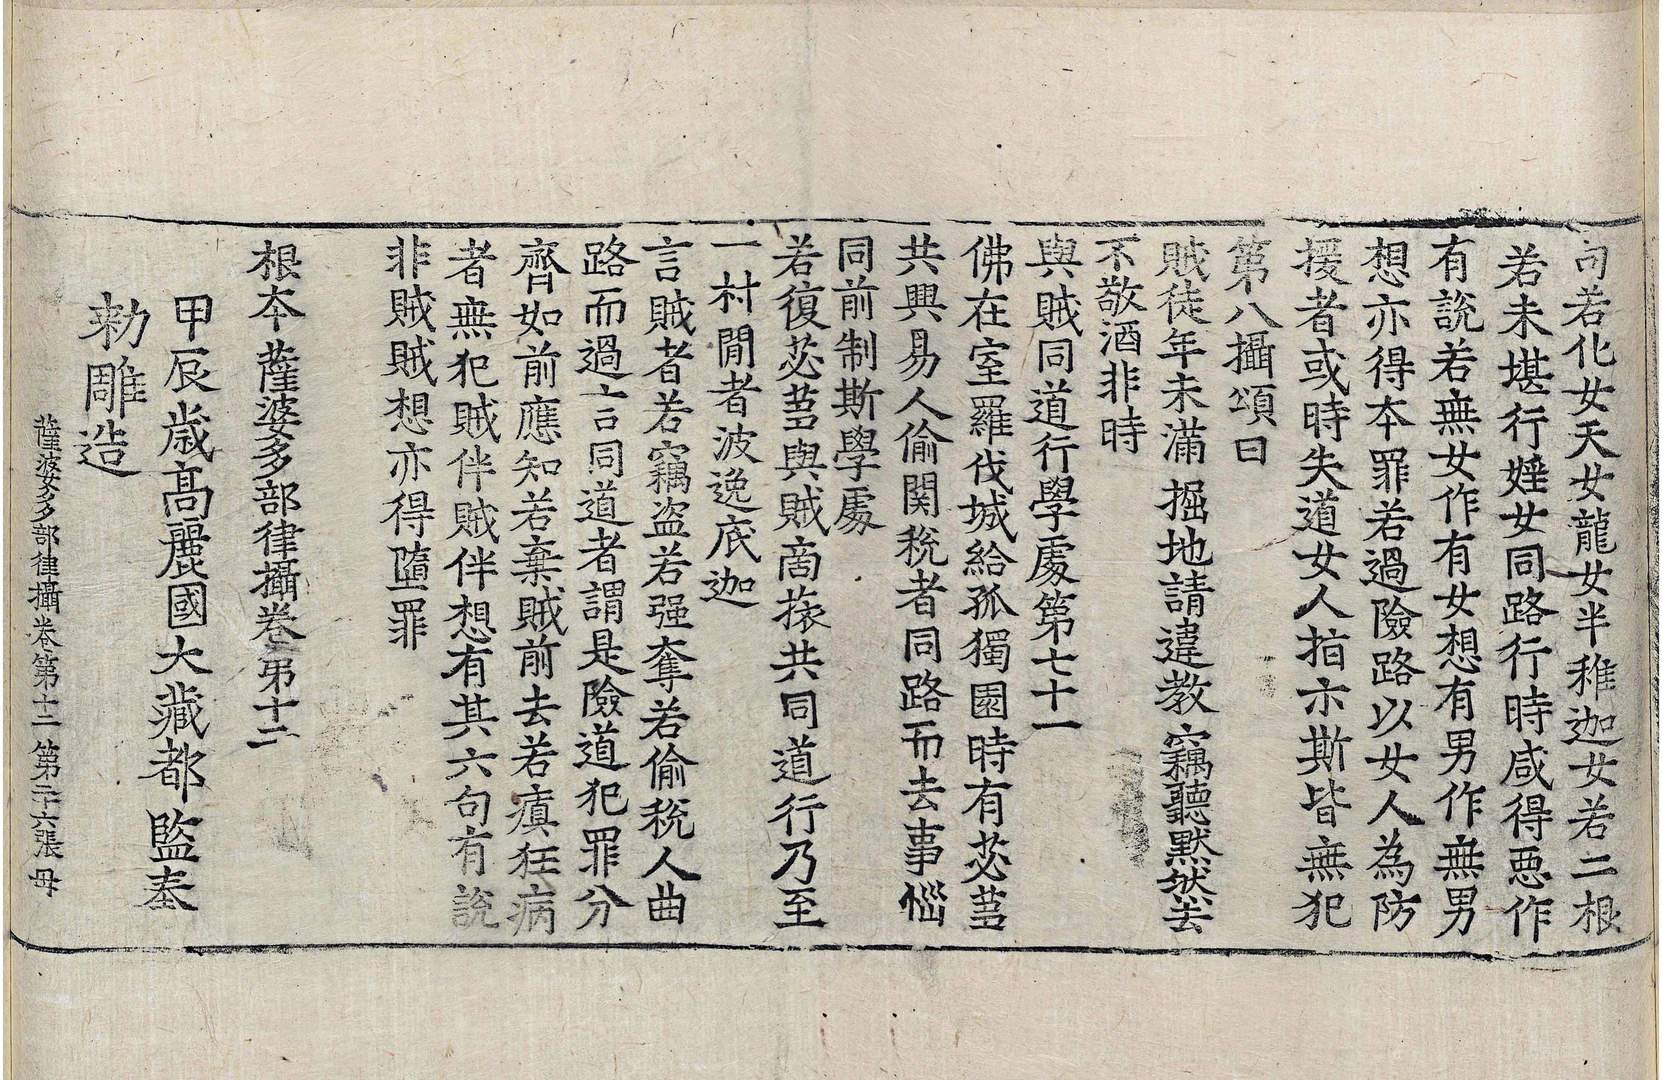 句若化女天女龍女半稚迦女若二根
若未堪行婬女同路行時咸得惡作
有說若無女作有女想有男作無男
想亦得本罪若過險路以女人為防
援者或時失道女人指示斯皆無犯
第八攝頌曰
賊徒年未滿 掘地請違教 竊聽默然去
不敬酒非時
與賊同道行學處第七十一
佛在室羅伐城給孤獨園時有苾芻
共興易人偷関稅者同路而去事惱
同前制斯學處
若復苾芻與賊啇旅共同道行乃至
一村間者波逸底迦
言賊者若竊盜若强奪若偷稅人曲
路而過言同道者謂是險道犯罪分
齊如前應知若棄賊前去若瘨狂病
者無犯賊伴賊伴想有其六句有說
非賊賊想亦得墮罪
根本薩婆多部律攝卷第十二
甲辰歲高麗國大藏都監奉
勅雕造
薩婆多部律攝卷第十二 第二十六張 毋